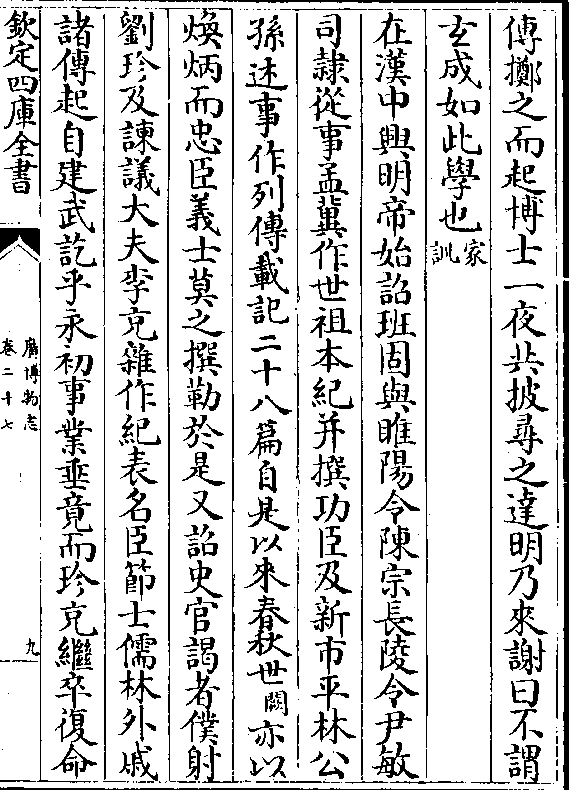 傅擲之而起博士一夜共披尋之達明乃來謝曰不謂
玄成如此學也家訓
在漢中興明帝始詔班固與睢陽令陳宗長陵令尹敏
司隸從事孟冀作世祖本紀并撰功臣及新市平林公
孫述事作列傳載記二十八篇自是以來春秋世闕亦以
煥炳而忠臣義士莫之撰勒於是又詔史官謁者僕射
劉珍及諫議大夫李充雜作紀表名臣節士儒林外戚
諸傳起自建武訖乎永初事業垂竟而珍充繼卒復命
欽定四庫全書
廣博物志
卷二十七
九